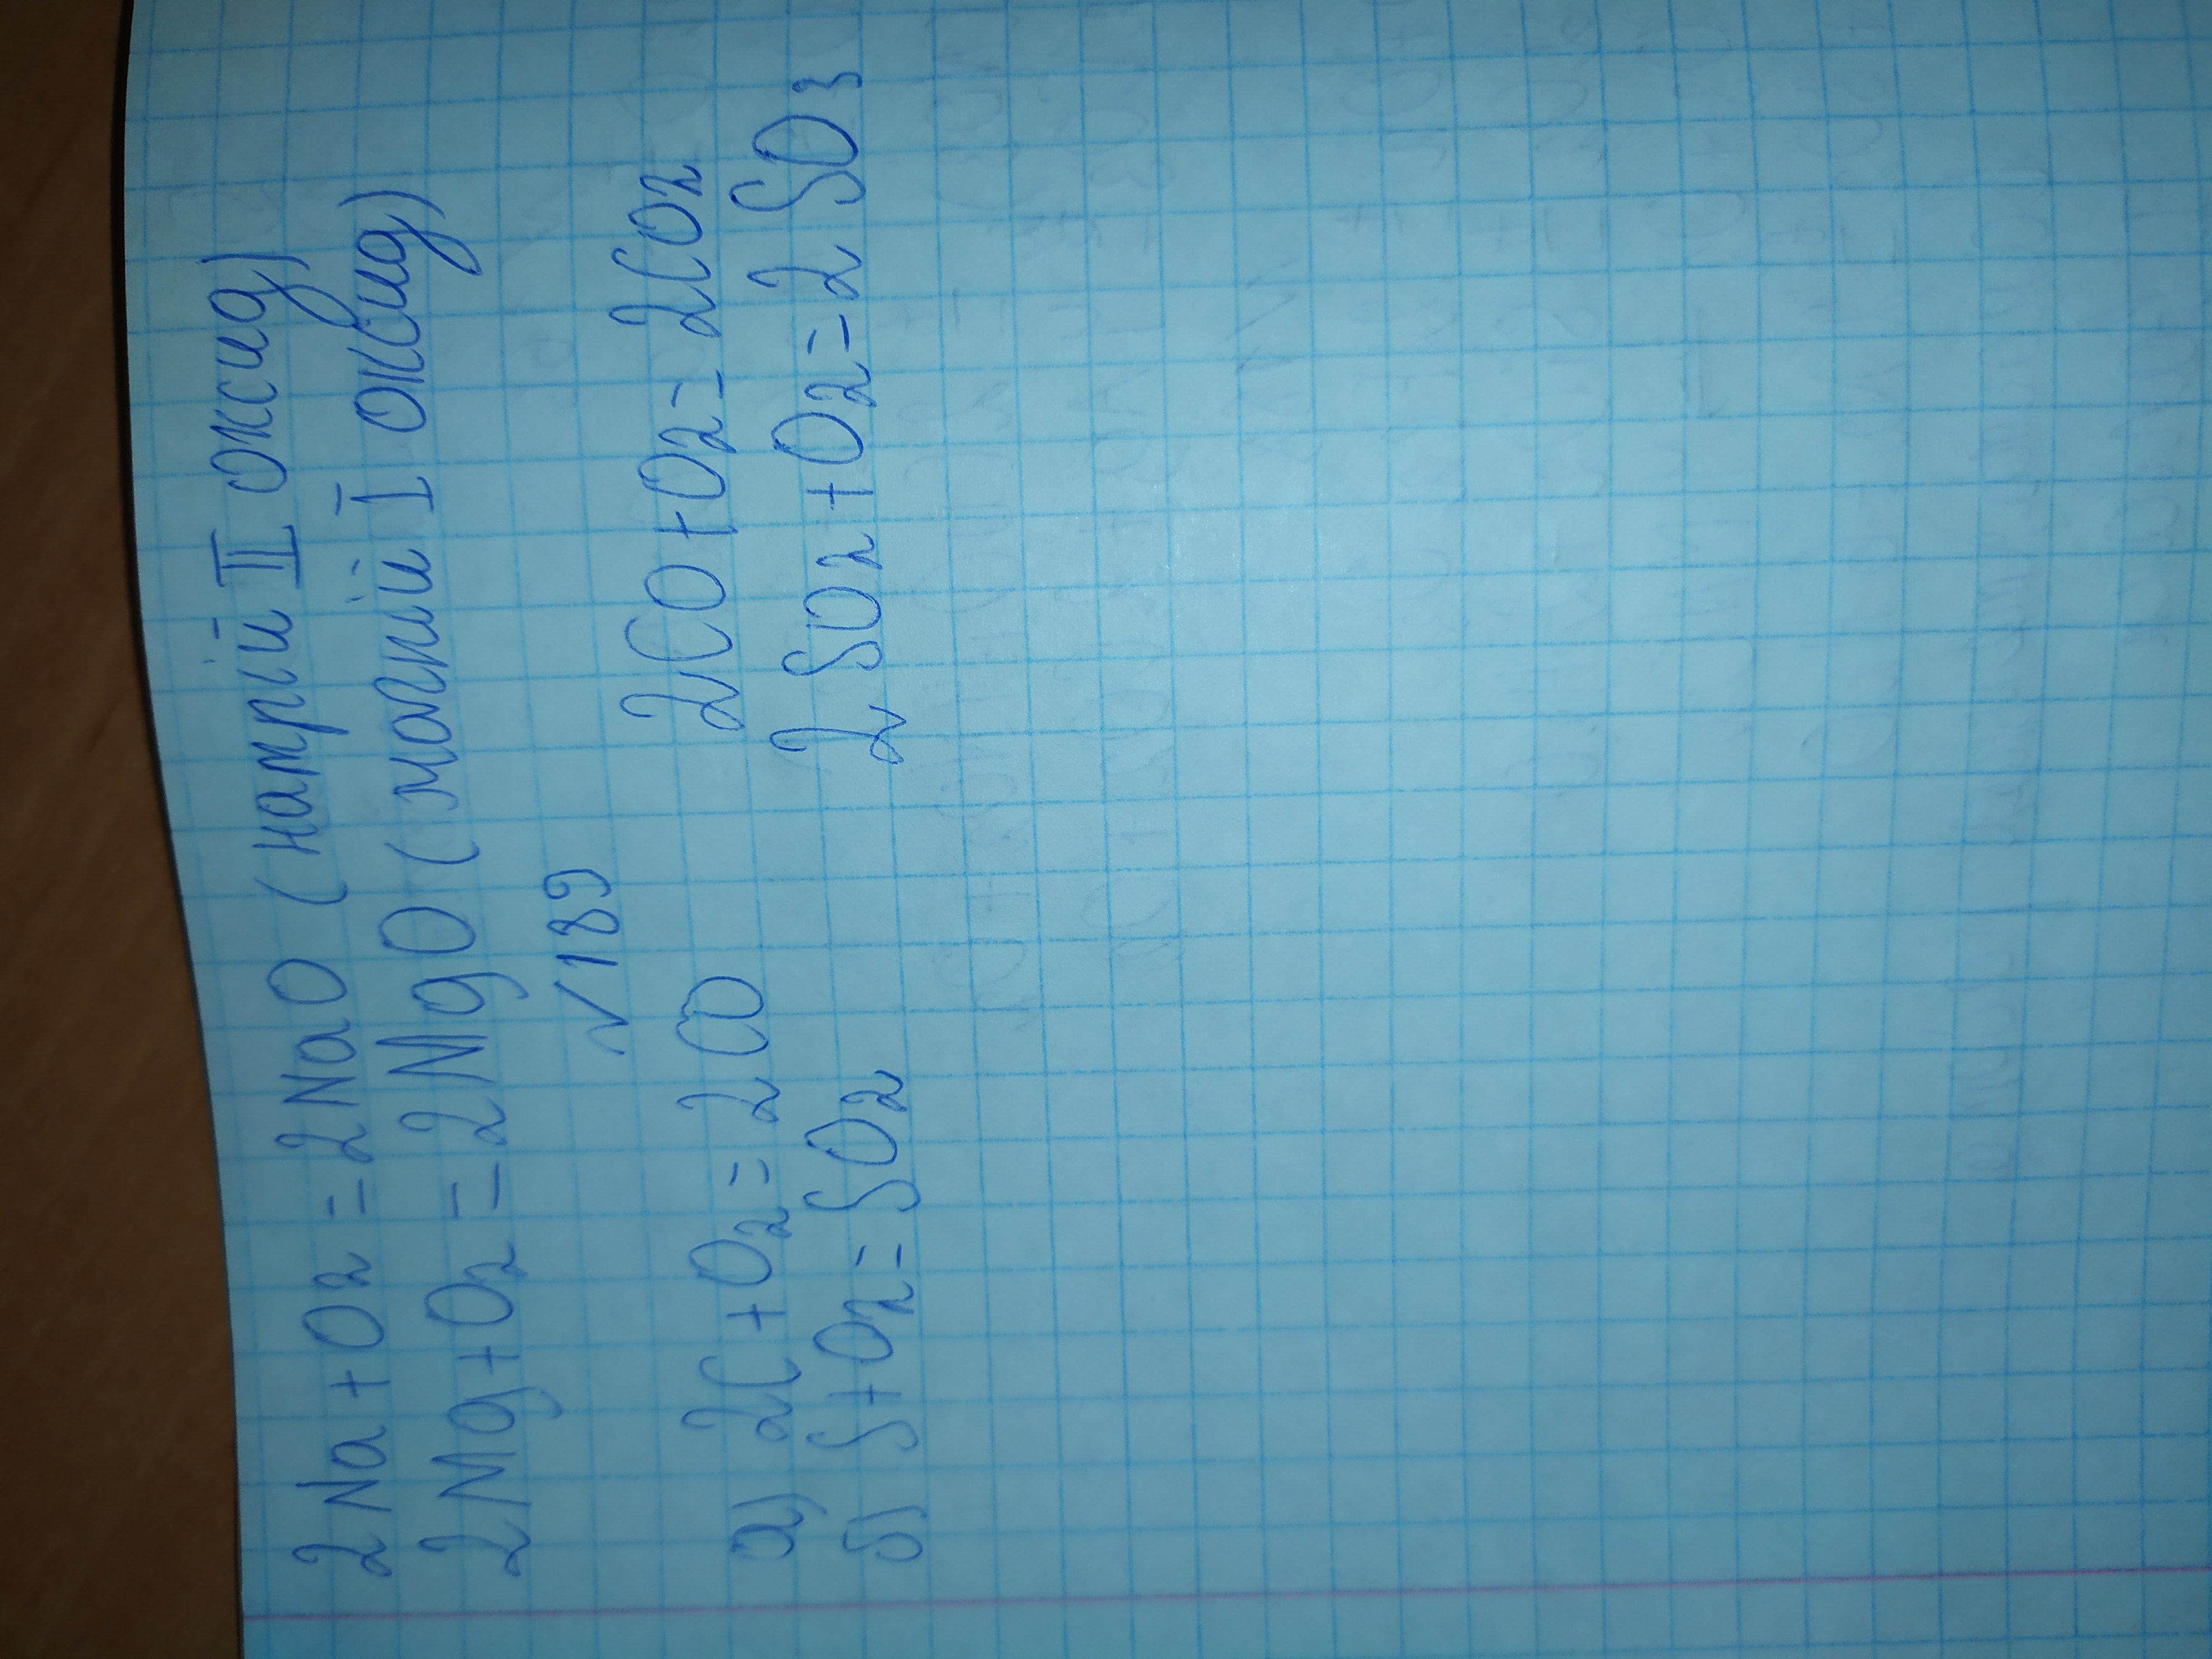 2Na + O2 = 2NaO (натрій II оксид)
2Mg + O2 = 2MgO (магній I оксид)
№189
а) 2C + O2 = 2CO 2CO + O2 = 2CO2
б) S + O2 = SO2 2SO2 + O2 = 2SO3